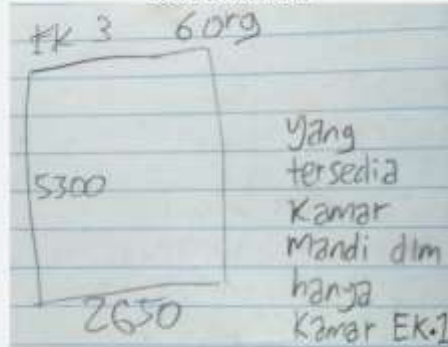 kk 3 6 org
5300
2650
yang
tersedia
Kamar
mandi dlm
hanya
Kamar EK.1